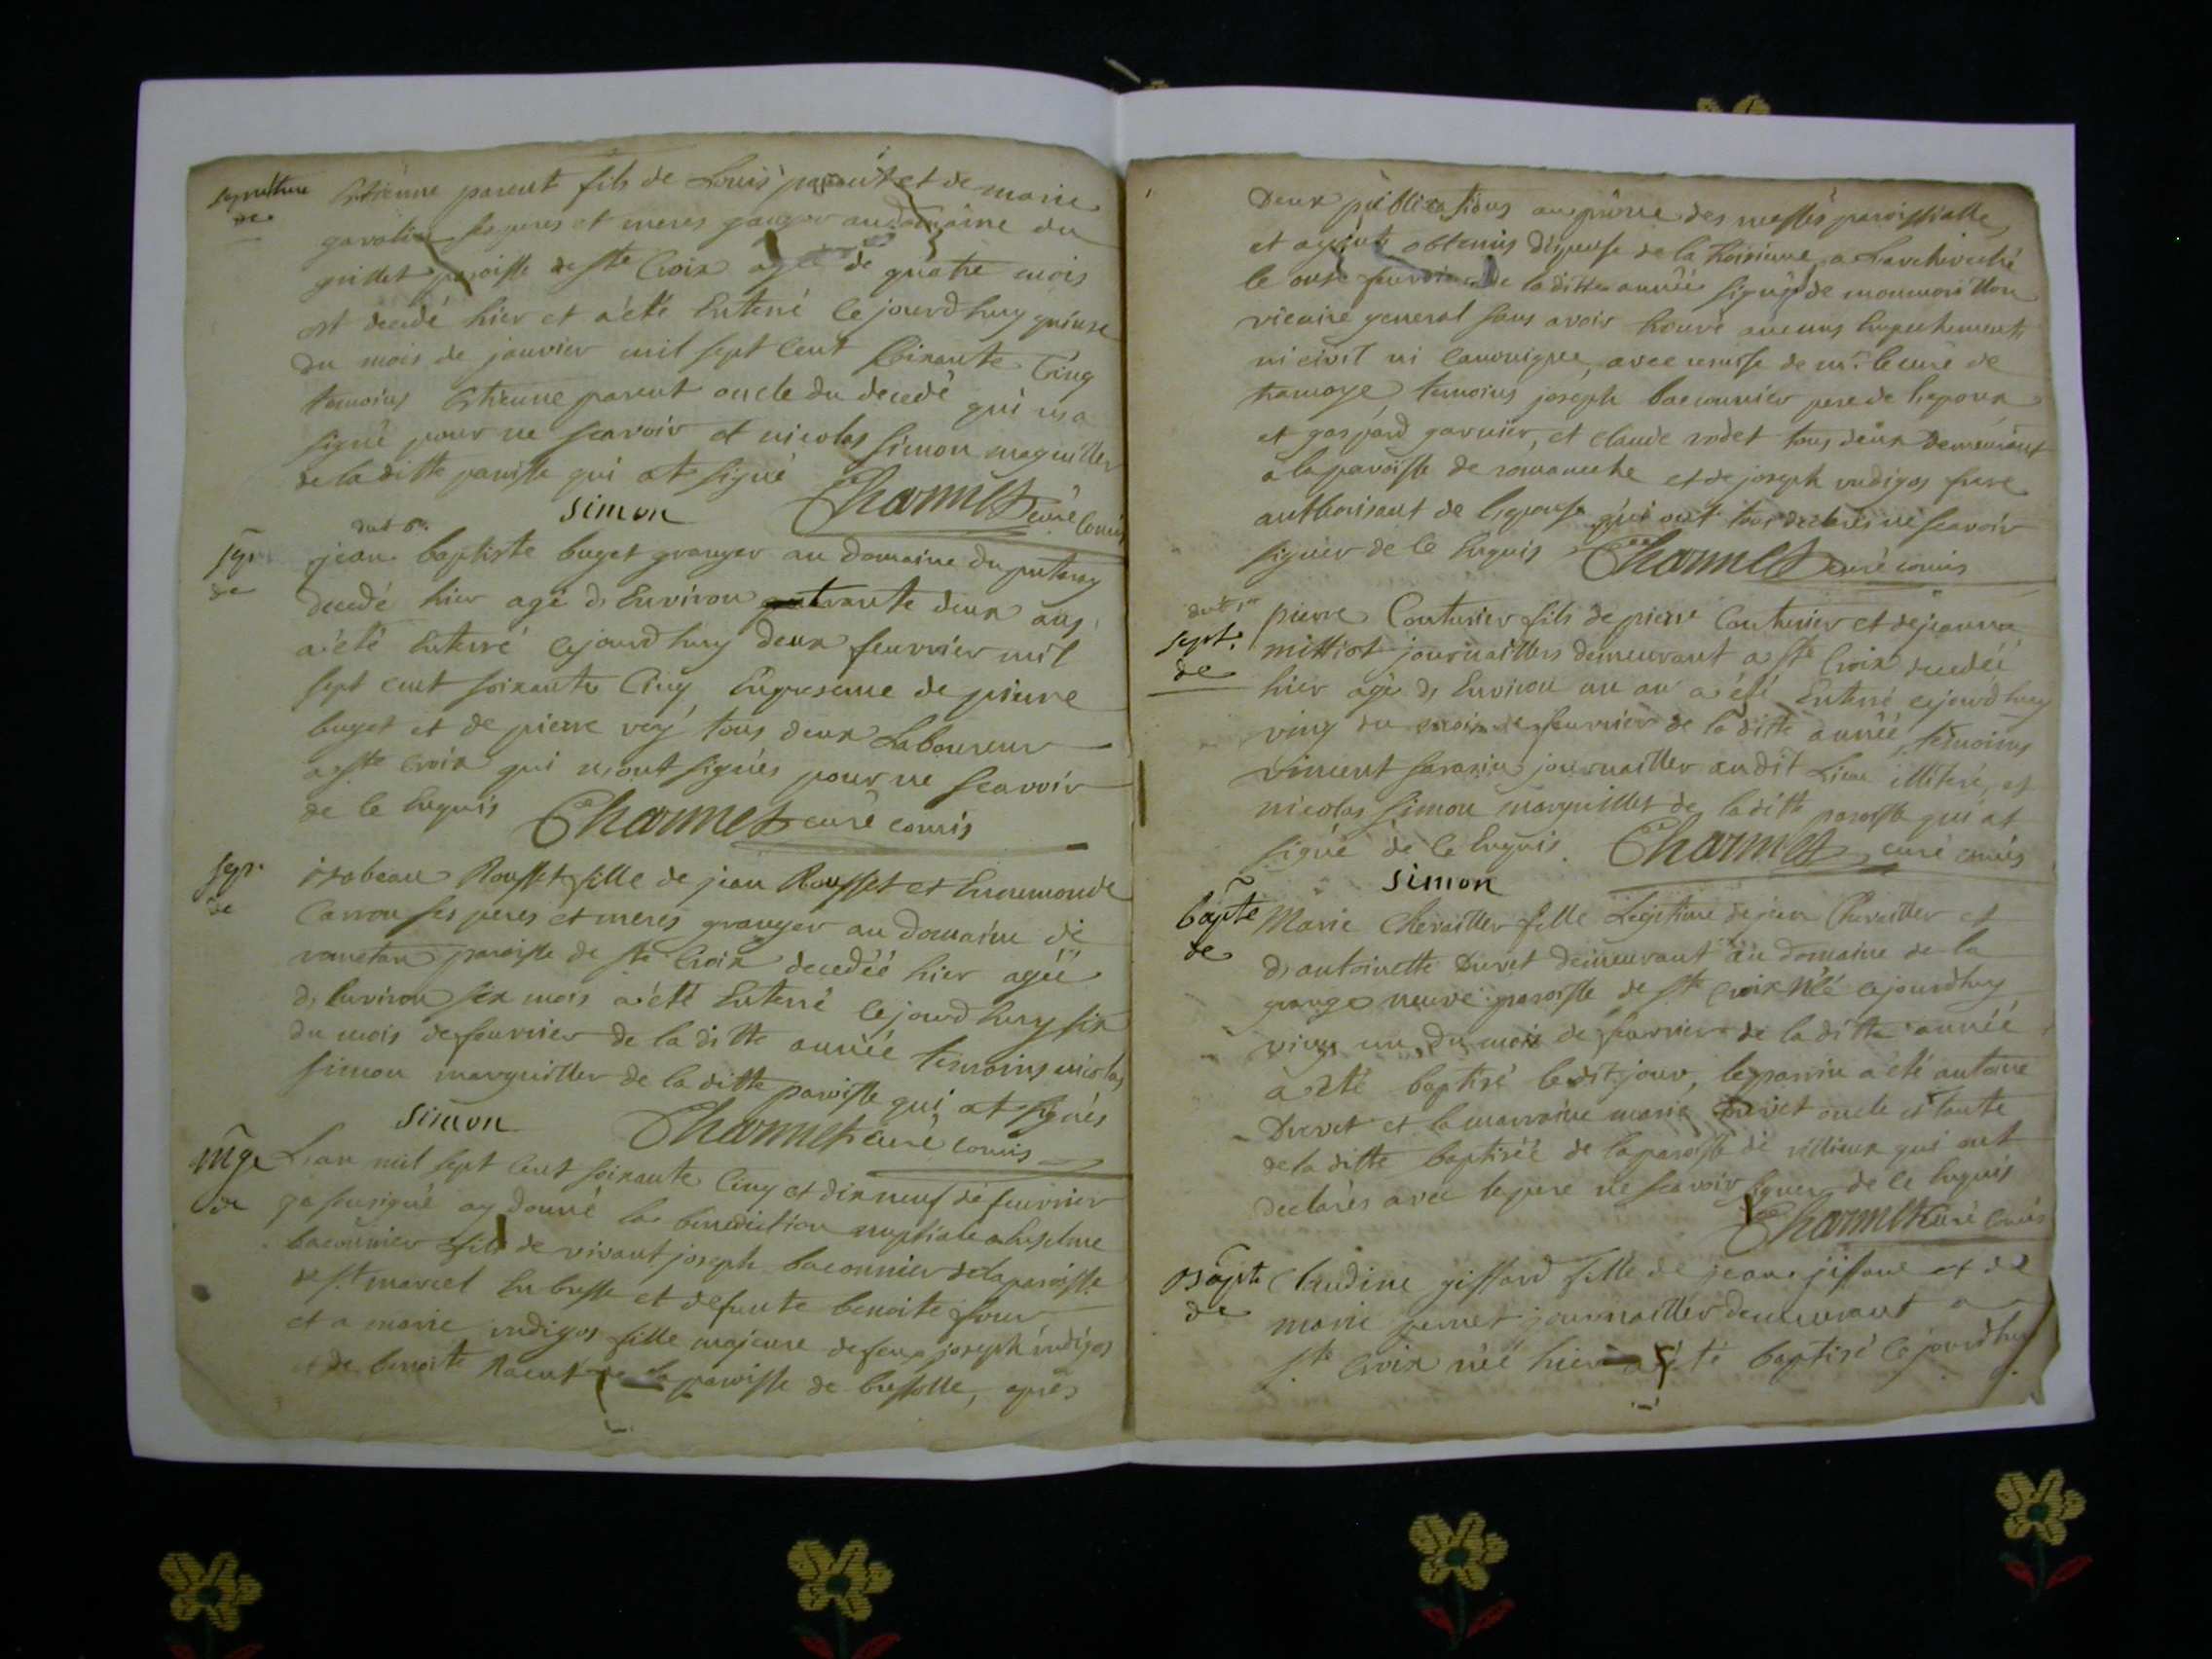 sepulture
de
Estienne parent fils de Louis parent et de marie
ses peres et meres granger au domaine du
paroisse de ste Croix agé de quatre mois
est decedé hier et a été Enterré Cejourd huy quinze
du mois de janvier mil sept Cent soixante Cinq
temoins Estienne parent oncle du decedé qui n'a
signé pour ne scavoir et nicolas simon marguiller
de laditte paroisse qui at signé
simon Charmet curé Comis
sep.
de
jean baptiste buget granger au domaine du
decedé hier agé d'Environ deux ans
a été Enterré Cejourd huy deux feuvrier mil
sept cent soixante Cinq, Enpresence de pierre
buget et de pierre rey tous deux Laboureur
a ste Croix qui n'ont signés pour ne scavoir
de ce Enquis Charmet curé comis
sep.
de
isabeau Rousset fille de jean Rousset et Enemonde
Carron ses peres et meres granger au domaine de
paroisse de ste Croix decedéé hier agéé
d'Environ six mois a été Enterré Cejourd huy six
du mois defeuvrier de la ditte année temoins nicolas
simon marguiller de la ditte paroisse qui at signés
simon Charmet curé comis
mge
de
L'an mil sept Cent soixante Cinq et dix neuf de feuvrier
je soussigné ay donné la benediction nuptiale a
baconnier fils de vivant joseph baconnier delaparoisse
de st. marcel En bresse et defunte benoite
et a marie vudigos fille majeure defeux joseph vudigos
et de benoite de la paroisse de bressolle, après
Deux publications au prône des messes paroissialle
et ayant obtenus dispense de la troisieme a Larcheveché
le onse feuvrier de la ditte année signé de monmorillon
vicaire general sans avoir trouvé aucuns Enpechements
ni civil ni Canonique, avec remise de mr. le curé de
tramoye temoins joseph baconnier pere de l'epoux
et gaspard garnier, et claude rodet tous deux demeurant
a la paroisse de romaneche et de joseph vudigos frere
authorisant de l'epouse qui ont tous declarés ne scavoir
signer de ce Enquis Charmet curé comis
sept.
de
pierre Couturier fils de pierre Couturier et dejeanne
milliot journailliers demeurant a ste Croix decedéé
hier agé d'Environ un an a été Enterré cejourd huy
ving du mois de feuvrier de la ditte année, temoins
vincent sarasin journailler audit Lieu illiteré, et
nicolas simon marguillet de laditte paroisse qui at
signé de ce Enquis Charmet curé comis
simon
bapte
de
Marie Chevailler fille Legitime de jean Chevailler et
d'antoinette Duret demeurant au domaine de la
grange neuve paroisse de ste Croix née cejourdhuy
ving un du mois de feuvrier de la ditte année
a été baptisé ledit jour, le parrin a été antoine
Durret et la marraine marie Durret oncle et tante
de la ditte baptiséé de la paroisse de rillieux qui ont
declarés avec lepere ne scavoir signer de ce Enquis
Charmet curé Comis
bapt
de
Claudine giffard fille de jean giffard et de
marie perret journailler demeurant a
ste. Croix néé hier a été baptisé Cejourdhuy